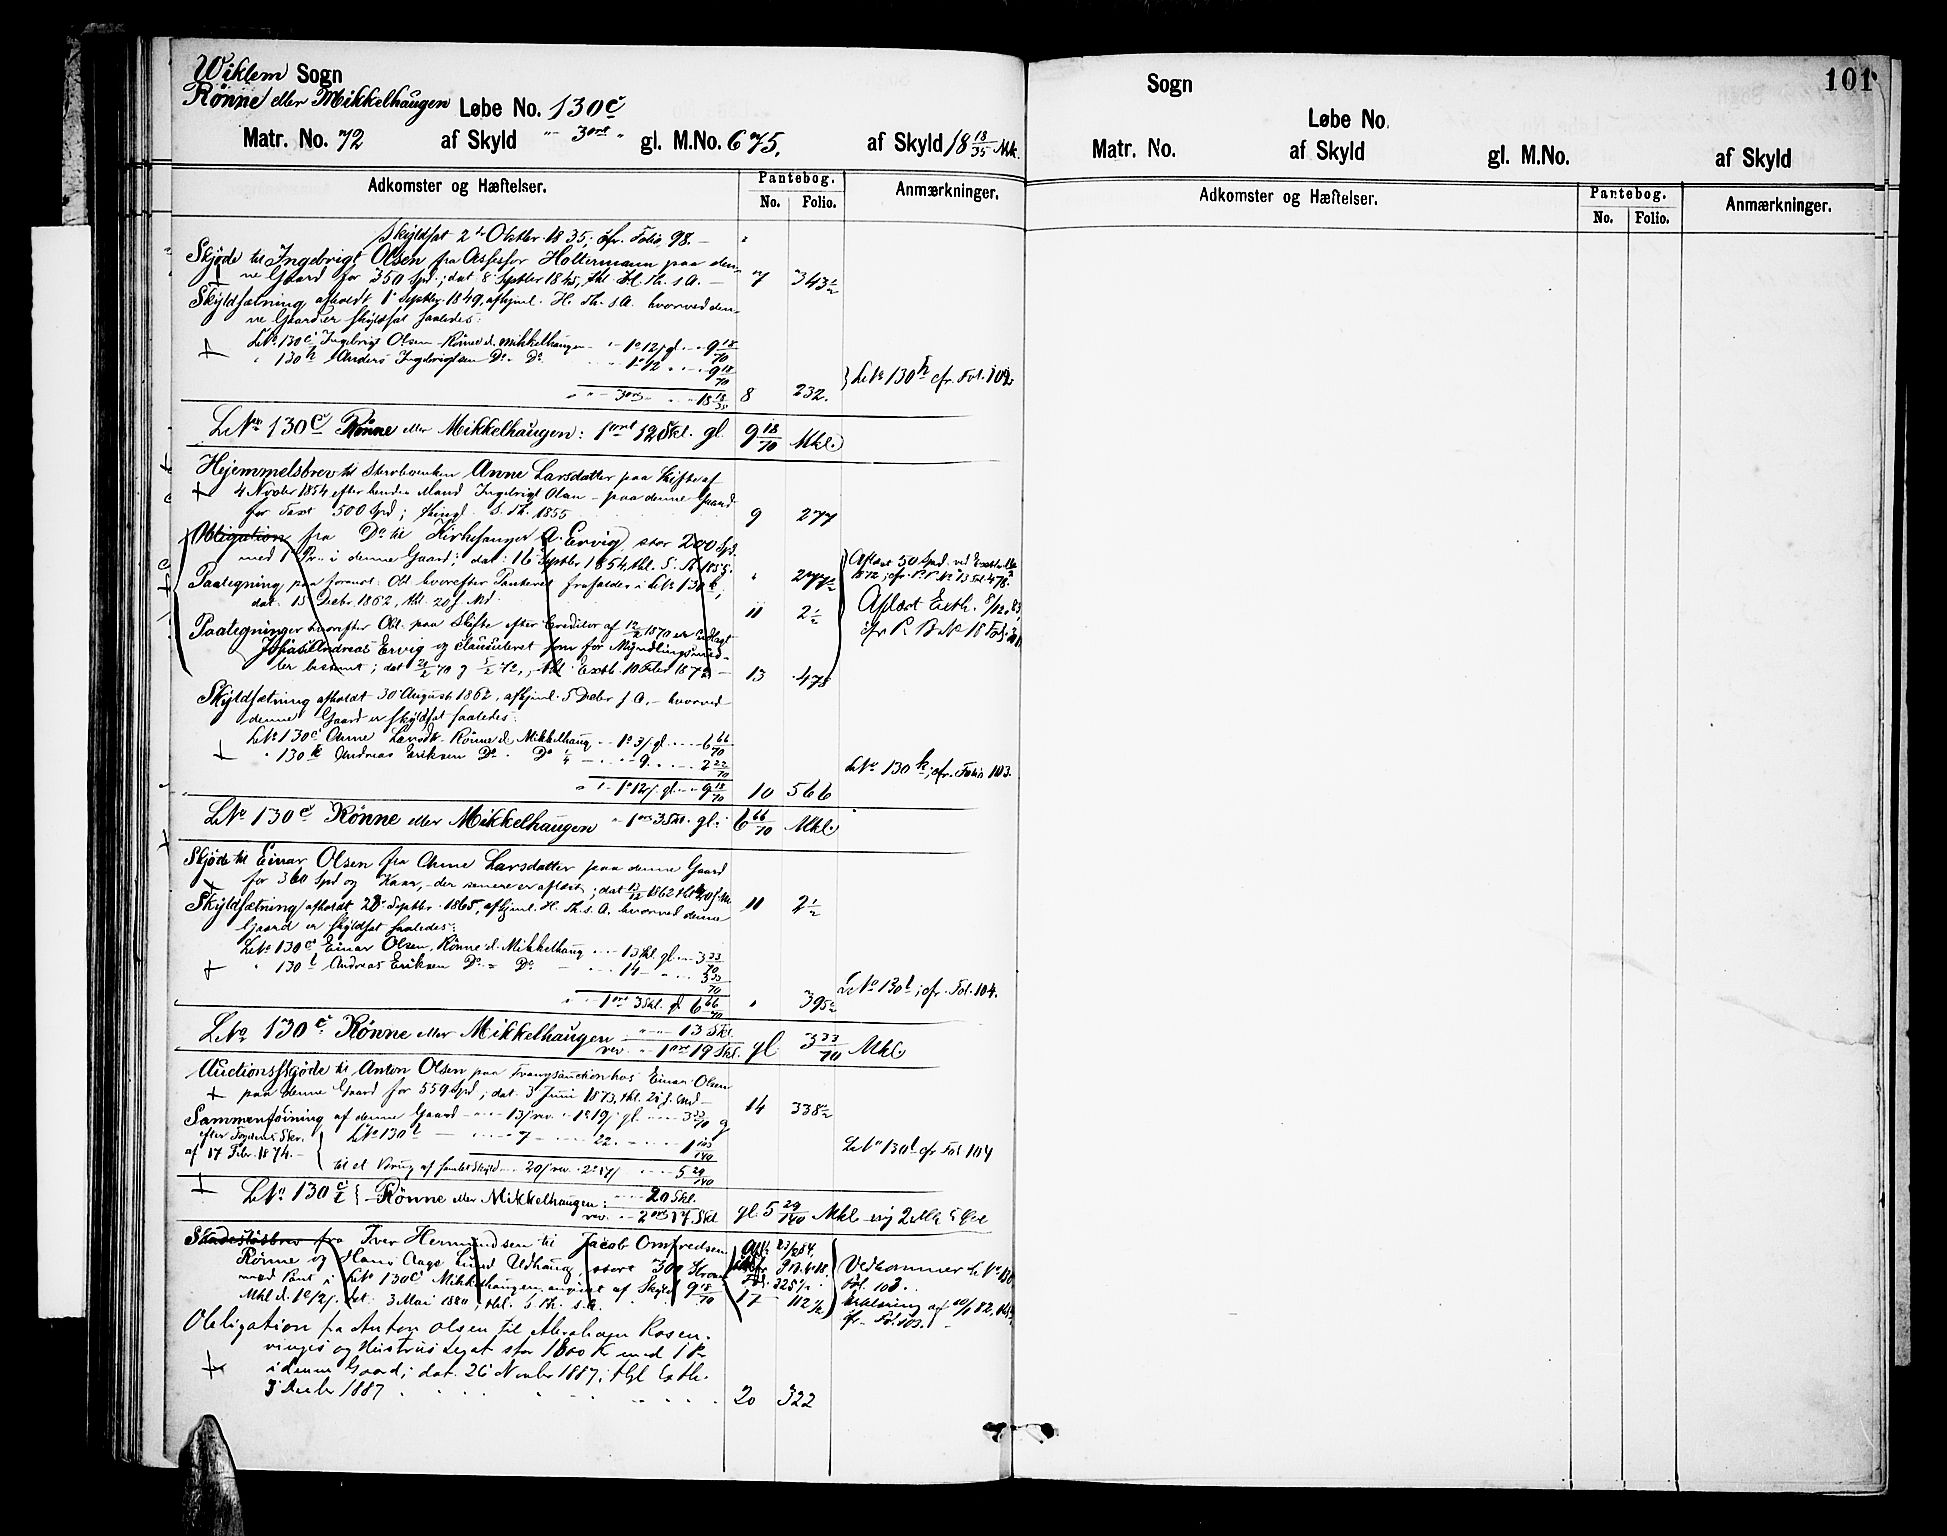 Wiklem Sogn
Rønne eller Mikkelhaugen Løbe No. 130c
Matr. No. 72 af Skyld "- 3 ort " gl. M.No. 675. af Skyld 18 18/35 Mk.
Adkomster og Hæftelser. Pantebog. No. Folio. Anmærkninger.
Skyldsat 2 Oktbr. 1835; cfr. Folio 98. –
Skjøde til Ingebrigt Olsen fra Assessor Holtermann paa den-
ne Gaard for 350 Spd.; dat 8 Septbr 1845, thl. H. Th. s. A. – 7 343½
Skyldsætning afholdt 1 Septbr. 1849, afhjml. H. Th. s A. hvorved den-
ne Gaard er skyldsat saaledes:
LNo 130c Ingebrigt Olsen Rønne el. Mikkelhaugen - " - 1 o 12 / gl. - - 9 18/70
" 130h Anders Ingebrigtsen Do. Do. 1 o 12 9 18/70
LNo 130h cfr. Fol. 102
" " - 3 ort - " - 18 18/35 8 232.
LNo 130c Rønne eller Mikkelhaugen: 1 ort 12 Skl. gl. 9 18/70 Mkl.
Hjemmelsbrev til Skerboenken Anne Larsdatter paa Skifte af
4 Novbr 1854 efter hendes Mand Ingebrigt Olsen – paa denne Gaard
for Taxt 500 Spd; thingl. S. Th. 1855 9 277
Obligation fra Do til Kirkesanger A. Ervig, stor 200 Spd.
med 1 Pr. i denne Gaard; dat: 16 Septbr 1854, thl. S. Th 1855. " 277½
Aflæst 50 Spd. ved Exth.
1872, cfr. P. P. No 13 Fol. 478.
Paategning paa forannt. Obl. hvorefter Panteret frafaldes i LNo 130k;
dat. 15 Decbr. 1862, thl. 20 f. Md. 11 2½
Aflæst Exth. 8/12 83,
cfr P. B. No 18 Fol.
Paategninger hvorefter Obl. paa Skifte efter Creditor af 12/2 1870 er udlagt
Johan Andreas Ervig og clausuleret som for Myndlingsmid-
ler bestemt; dat 21/2 70 og 5/2 72, thl. Exth. 10 Febr 1872 – 13 478
Skyldsætning afholdt 30 August 1862, afhjml. 5 Decbr s A. – hvorved
denne Gaard er skyldsat saaledes:
LNo 130c Anne Larsdtr. Rønne el. Mikkelhaug - - 1 o 3 / gl. - - - - 6 66/70
" 130k Andreas Eriksen Do. Do - - - 9. - - - - 2 22/70
LNo 130k; cfr. Folio 103.
" 1 - 1 o 12 / gl. - - 9 18/70 10 566
LNo 130c Rønne eller Mikkelhaugen " - 1 ort 3 Skl. gl.: 6 66/70 Mkl.
Skjøde til Einar Olsen fra Anne Larsdatter paa denne Gaard
for 360 Spd og Kaar, – der senere er aflæst; dat 15/12 1862 thl. 20 f. Md. 11 2½
Skyldsætning afholdt 28 Septbr. 1865, afhjml. H. Th. s. A. hvorved denne
Gaard er skyldsat saaledes:
LNo 130c Einar Olsen, Rønne el. Mikkelhaug - - - 13 Skl. gl. - - 3 33/70
" 130l Andreas Eriksen Do. - Do. - - - 14 - - - 3 33/70
LNo 130l; cfr. Fol. 104.
" " - 1 ort 3 Skl. gl. 6 66/70 " 395½
LNo 130c Rønne eller Mikkelhaugen " - " - 13 Skl.
rev. - - 1 ort 19 Skl. gl 3 33/70 Mkl.
Auctionsskjøde til Anton Olsen paa Tvangsauction hos Einar Olsen
paa denne Gaard for 559 Spd; dat. 3 Juni 1873, thl. 21 f. Md – 14 338½
Sammenføining af denne Gaard - - - 13 / rev. " 1 o 19 / gl. - - - 3 33/70 og
efter Fogdens Skr. LNo 130l - - - - - 7 - - - 22. - - - - 1 103/140
af 17 Febr. 1874. –
LNo 130l cfr Fol 104
til et Brug af samlet Skyld - - - 20 / rev. - 2 o 17 / - - - 5 29/140
LNo 130 c/l Rønne eller Mikkelhaugen: - - - - 20 Skl.
rev. - - 2 ort 17 Skl gl. 5 29/140 Mkl – ny 2 Mk 5 Øre
Skadesløsbrev fra Iver Hermundsen til Jacob Omfredsen
Rønne og Hans Aage Lund Udhaug, store 300 Kroner
med Pant i LNo 130c Mikkelhaugen, anvist af Skyld 9 18/70
Mkl. el. 1 o 12 /. dat. 3 Mai 1880, thl. S. Th. s. A. 17 112½
Vedkommer LNo 130
Fol. 103.
Erklæring af
cfr. Fol. 103.
Obligation fra Anton Olsen til Abraham Rosen-
vinges og Hustrus Legat stor 1800 K med 1 Pr
i denne Gaard; dat. 26 Novbr 1887; thgl Exth.
3 Decbr 1887 20 322
101
Sogn
Løbe No.
Matr. No. af Skyld gl. M.No. af Skyld
Adkomster og Hæftelser. Pantebog. No. Folio. Anmærkninger.